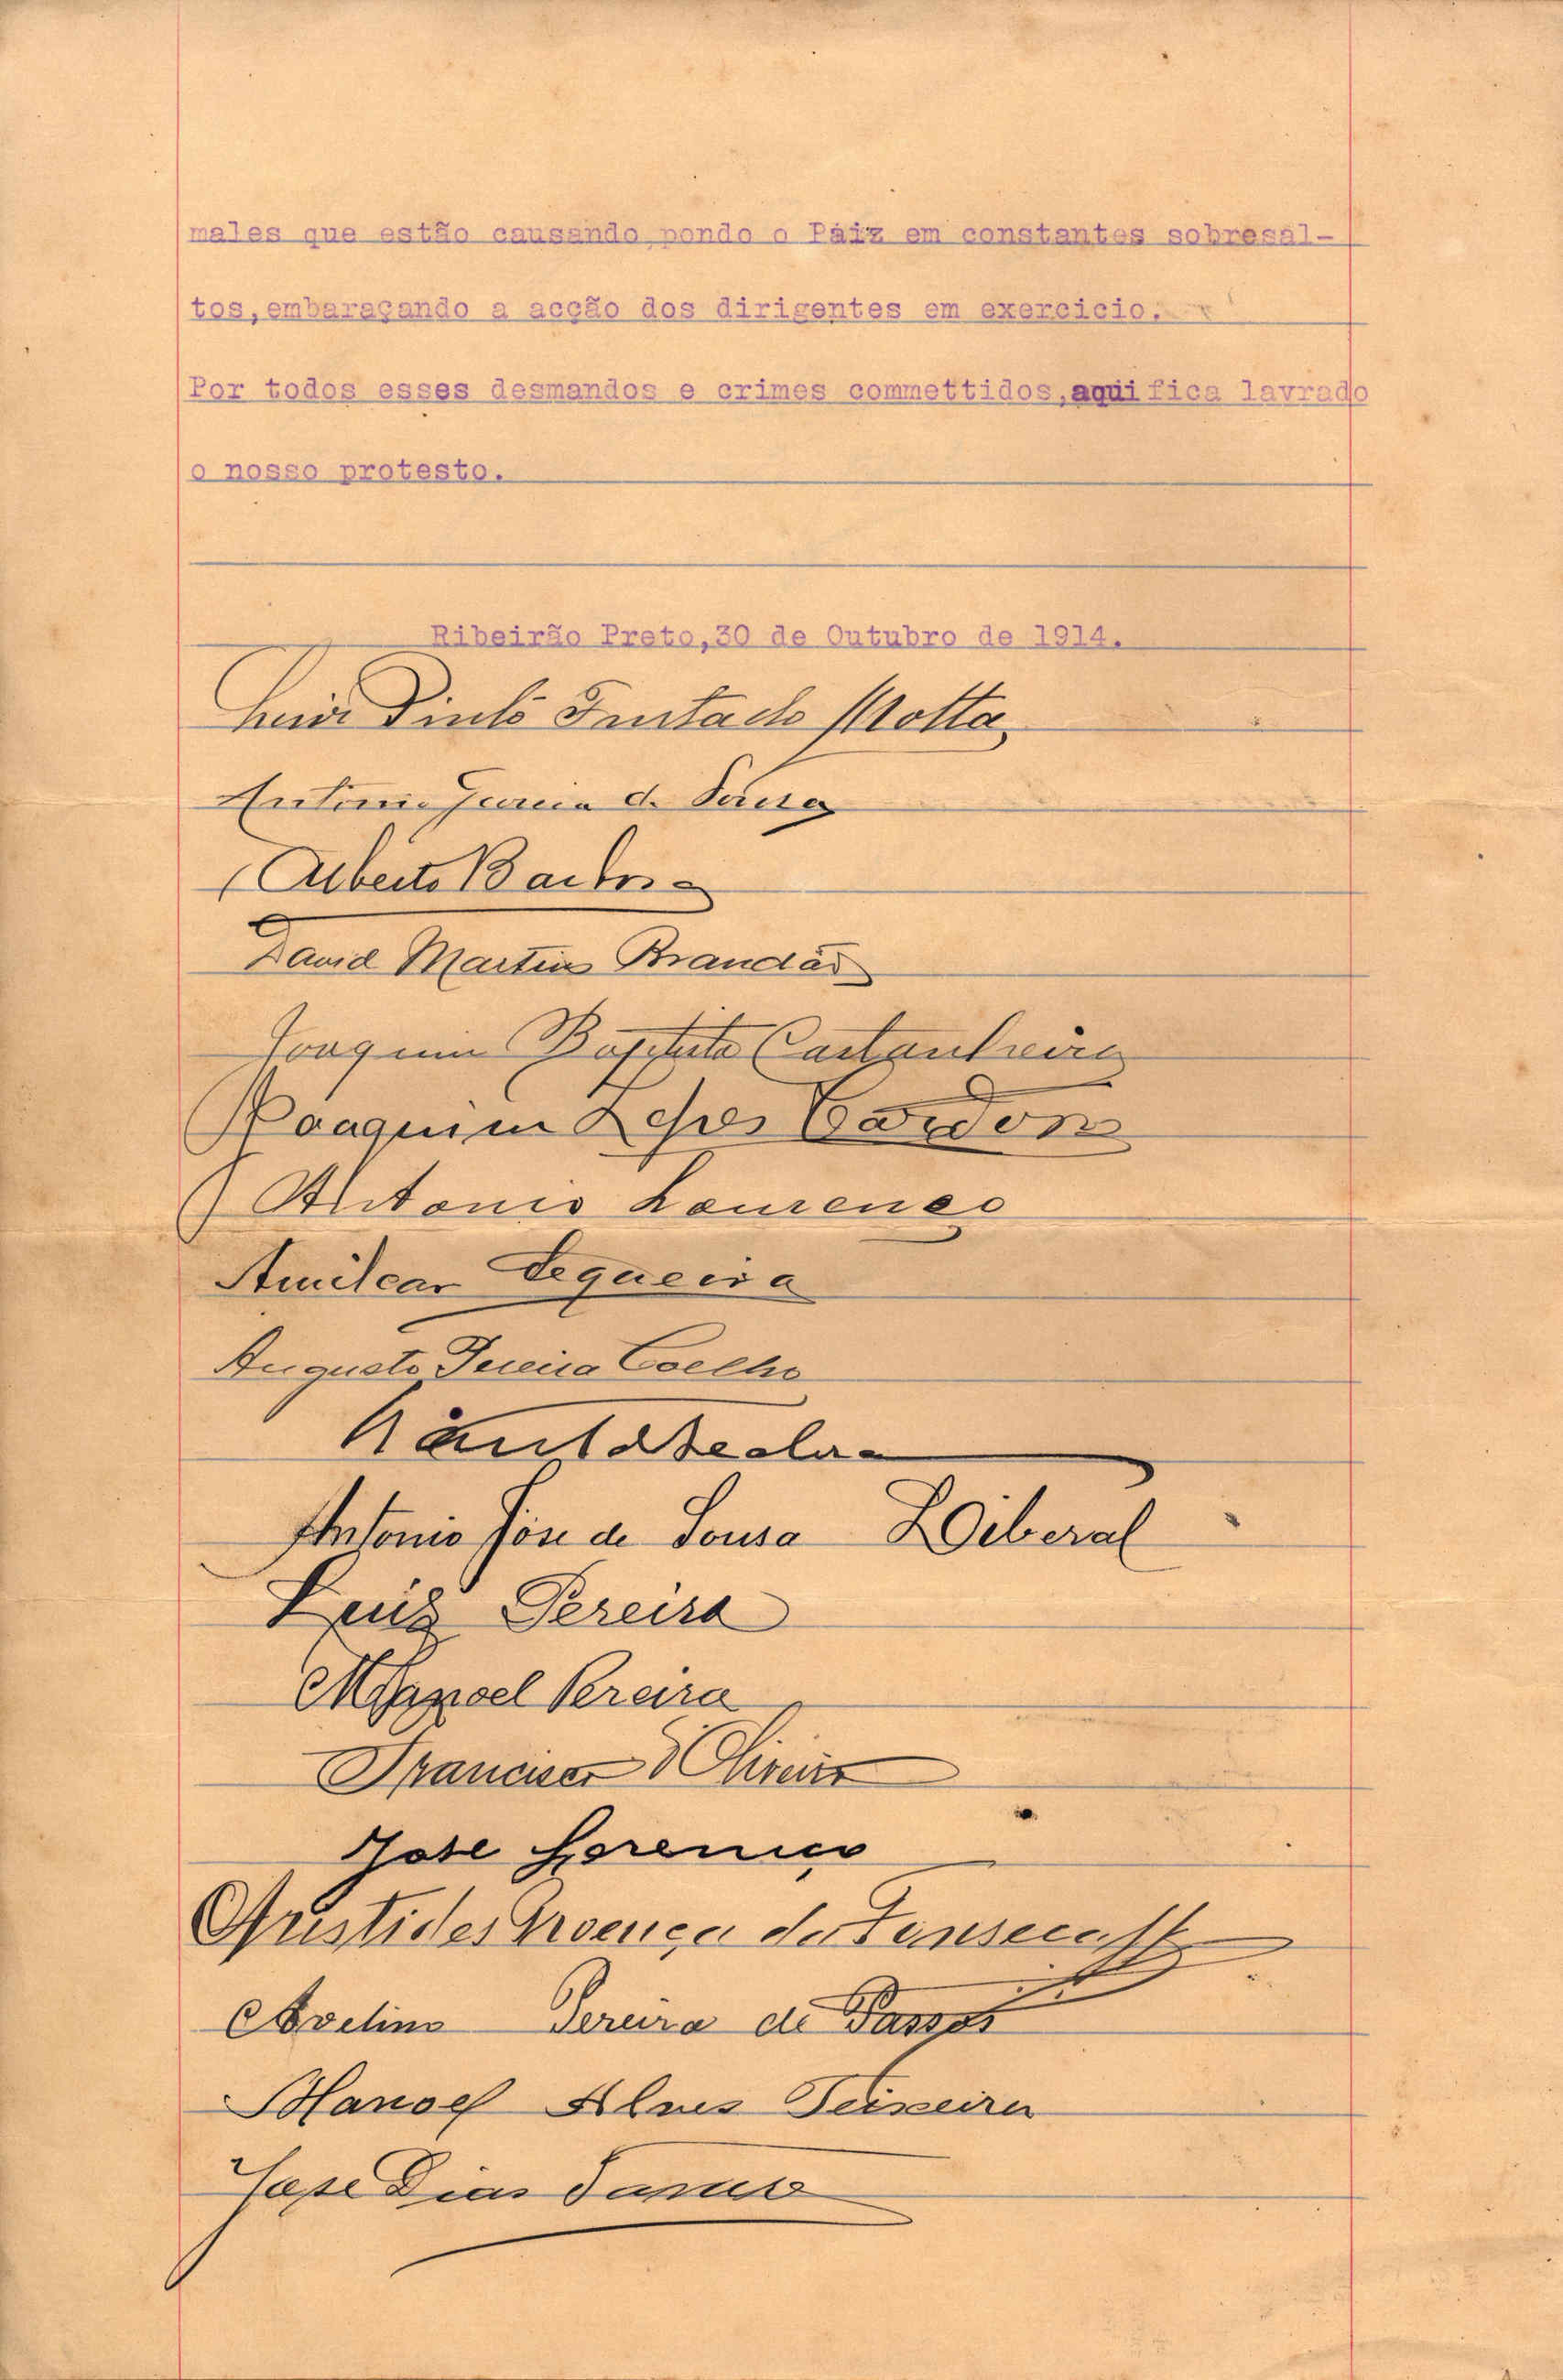 males que estão causando, pondo o Paiz em constantes sobresal-
tos,embaraçando a acção dos dirigentes em exercicio.
Por todos esses desmandos e crimes commettidos,aqui fica lavrado
o nosso protesto.
Ribeirão Preto,30 de Outubro de 1914.
Pinto Furtado Motta
Antonio de
Alberto
David Martins Brandão
Joaquim Baptista Castanheira
Joaquim Lopes Cardoso
Antonio Lourenço
Amilcar Sequeira
Augusto Pereira Coelho
Antonio José de Sousa Liberal
Luiz Pereira
Manoel Pereira
Francisco d'Oliveira
José Lorenço
Aristides Proença da Fonseca
Avelino Pereira de Passos
Manoel Alves Teixeira
José Dias